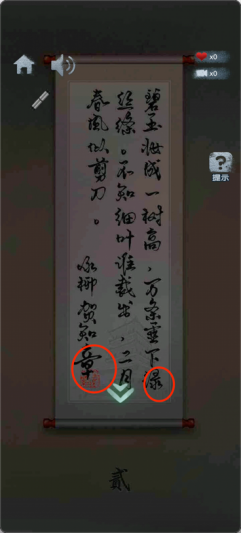 x0
x0
?
提示
碧玉妆成一树高，万条垂下绿
丝绦。不知细叶谁裁出，二月
春风似剪刀。
咏柳 贺知章
貳